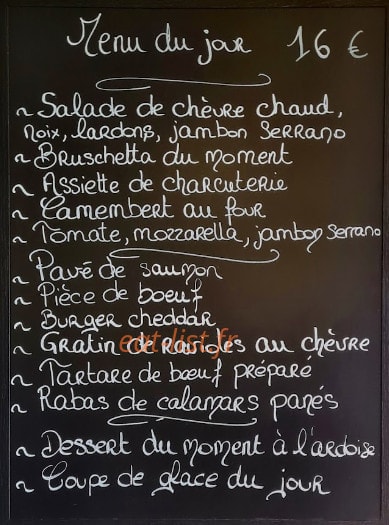 Menu du jour 16 €
~ Salade de chèvre chaud,
noix, lardons, jambon Serrano
~ Bruschetta du moment
~ Assiette de charcuterie
~ Camembert au four
~ Tomate, mozzarella, jambon Serrano
~ Pavé de saumon
~ Pièce de boeuf
~ Burger cheddar
~ Gratin de ravioles au chèvre
eat-list.fr
~ Tartare de boeuf préparé
~ Rabas de calamars panés
~ Dessert du moment à l'ardoise
~ Coupe de glace du jour